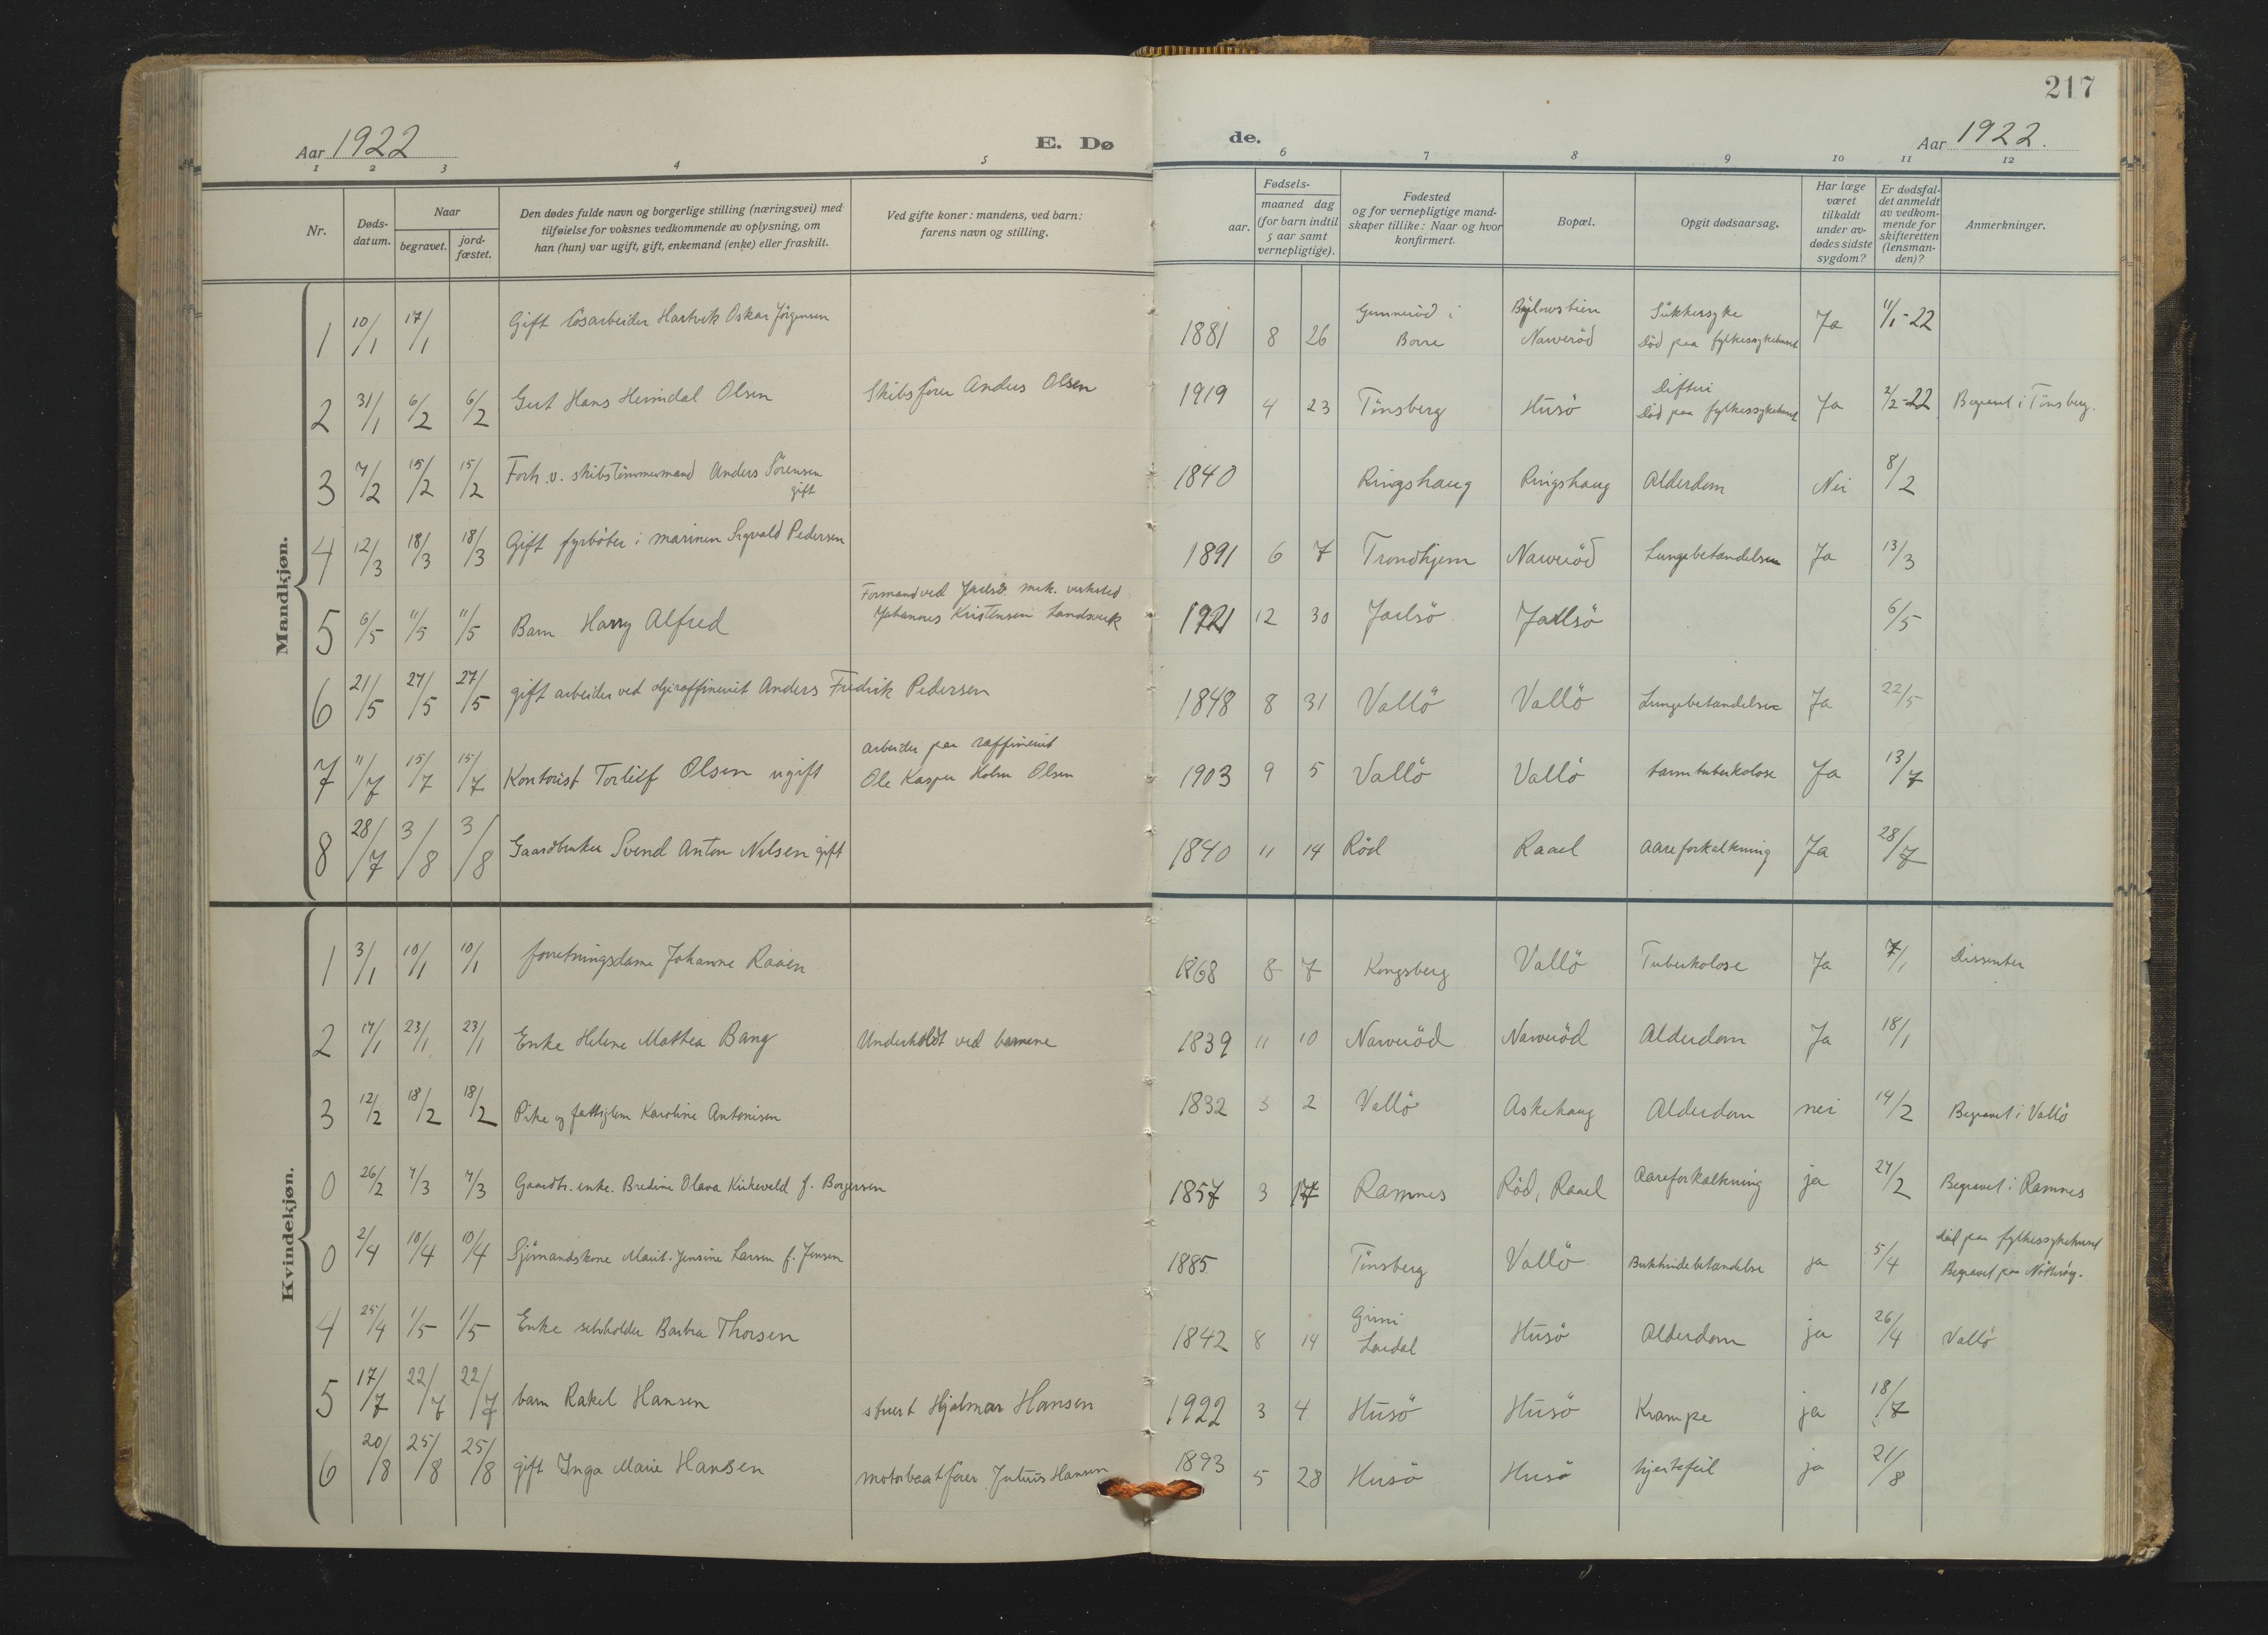 217
Aar 1922
E. Dø
de.
Aar 1922.
1 2 3 4 5 6 7 8 9 10 11 12
Nr.
Døds-
datum.
Naar
begravet.
jord-
fæstet.
Den dødes fulde navn og borgerlige stilling (næringsvei) med
tilføielse for voksnes vedkommende av oplysning, om
han (hun) var ugift, gift, enkemand (enke) eller fraskilt.
Ved gifte koner: mandens, ved barn:
farens navn og stilling.
Fødsels-
aar.
maaned dag
(for barn indtil
5 aar samt
vernepligtige).
Fødested
og for vernepligtige mand-
skaper tillike: Naar og hvor
konfirmert.
Bopæl.
Opgit dødsaarsag.
Har læge
været
tilkaldt
under av-
dødes sidste
sygdom?
Er dødsfal-
det anmeldt
av vedkom-
mende for
skifteretten
(lensman-
den)?
Anmerkninger.
Mandkjøn.
1 10/1 17/1 Gift løsarbeider Hartvik Oskar Jörgensen 1881 8 26 Gunneröd i Borre Narveröd Sukkersyke Död paa fylkessykehuset Ja 11/1-22
2 31/1 6/2 6/2 Gert Hans Heimdal Olsen Skibsförer Anders Olsen 1919 4 23 Tönsberg Husö Difteri Död paa fylkessykehuset Ja 2/2-22 Begravet i Tönsberg.
3 7/2 15/2 15/2 Forh. v. skibstömmermand Anders Sörensen gift 1840 Ringshaug Ringshaug Alderdom Nei 8/2
4 12/3 18/3 18/3 Gift fyrböter i marinen Sigvald Pedersen 1891 6 7 Trondhjem Narveröd Lungebetændelse Ja 13/3
5 6/5 11/5 11/5 Barn Harry Alfred Formand ved Jarlsö mek. verksted Johannes Kristensen Landsverk 1921 12 30 Jarlsö Jarlsö 6/5
6 21/5 27/5 27/5 gift arbeider ved oljeraffineriet Anders Fredrik Pedersen 1848 8 31 Vallö Vallö Lungebetændelse Ja 22/5
7 11/7 15/7 15/7 Kontorist Torleif Olsen ugift arbeider paa raffineriet Ole Kasper Holm Olsen 1903 9 5 Vallö Vallö tarmtuberkolose Ja 13/7
8 28/7 3/8 3/8 Gaardbruker Svend Anton Nilsen gift 1840 11 14 Röd Raael Aareforkalkning Ja 28/7
Kvindekjøn.
1 3/1 10/1 10/1 forretningsdame Johanne Raaen 1868 8 7 Kongsberg Vallö Tuberkolose Ja 7/1 Dissenter
2 17/1 23/1 23/1 Enke Helene Mathea Bang Underholdt ved barnene 1839 11 10 Narveröd Narveröd Alderdom Ja 18/1
3 12/2 18/2 18/2 Pike og fattiglem Karoline Antonisen 1832 3 2 Vallö Askehaug Alderdom nei 14/2 Begravet i Vallö
0 26/2 7/3 7/3 Gaardbr. enke. Bredine Olava Kirkevold f. Borgersen 1857 3 17 Ramnes Röd, Raael Aareforkalkning ja 27/2 Begravet i Ramnes
0 2/4 10/4 10/4 Sjömandskone Marit Jensine Larsen f. Jensen 1885 Tönsberg Vallö Bukhindebetændelse ja 5/4 död paa fylkessykehuset Begravet paa Nötteröy.
4 25/4 1/5 1/5 Enke selvholder Barbra Thorsen 1842 8 14 Lardal Husö Alderdom ja 26/4 Vallö
5 17/7 22/7 22/7 barn Rakel Hansen stuert Hjalmar Hansen 1922 3 4 Husö Husö Krampe ja 18/7
6 20/8 25/8 25/8 gift Inga Marie Hansen motorbaatförer Julius Hansen 1893 5 28 Husö Husö hjertefeil ja 21/8